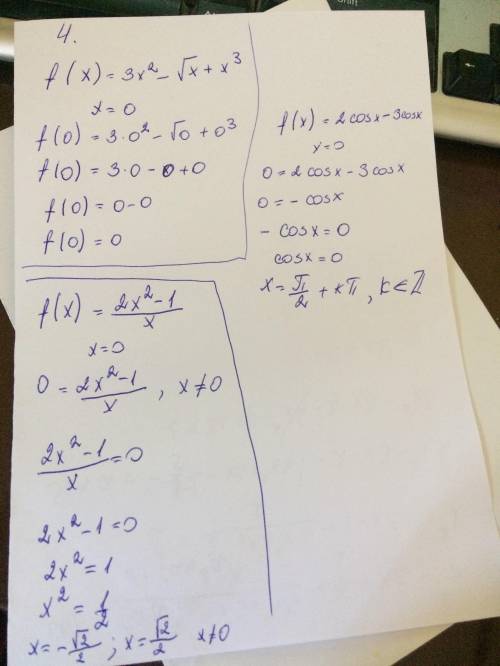 4.
f(x) = 3x² - √x + x³
x = 0
f(0) = 3·0² - √0 + 0³
f(0) = 3·0 - 0 + 0
f(0) = 0 - 0
f(0) = 0
f(x) = 2cosx - 3cosx
x = 0
0 = 2cosx - 3cosx
0 = - cosx
- cosx = 0
cosx = 0
x = π/2 + kπ, k ∈ Z
f(x) = (2x² - 1)/x
x = 0
0 = (2x² - 1)/x , x ≠ 0
(2x² - 1)/x = 0
2x² - 1 = 0
2x² = 1
x² = 1/2
x = -√2/2 ; x = √2/2 x ≠ 0